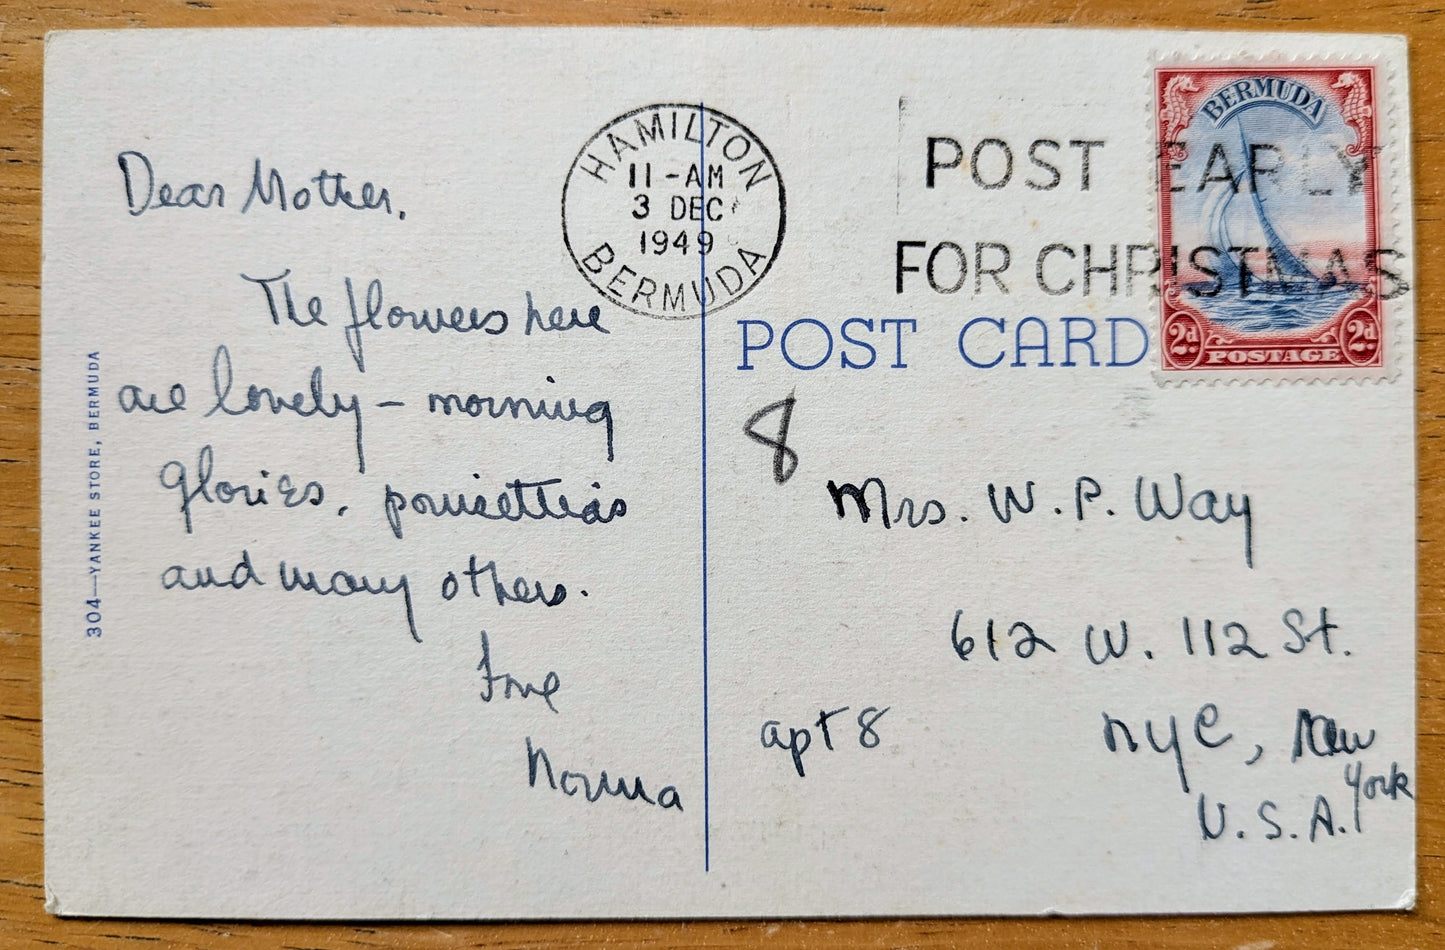 304—YANKEE STORE, BERMUDA
Dear Mother,
The flowers here
are lovely – morning
glories, poinsettias
and many others.
Love
Norma
HAMILTON
11-AM
3 DEC
1949
BERMUDA
POST EARLY
FOR CHRISTMAS
BERMUDA
2d. POSTAGE 2d.
POST CARD
8
Mrs. W. P. Way
612 W. 112 St.
apt 8
NYC, New
York
U.S.A.